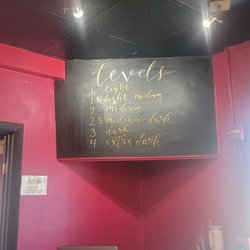 Levels
1 light
1.5 light-medium
2 medium
2.5 medium-dark
3 dark
4 extra dark